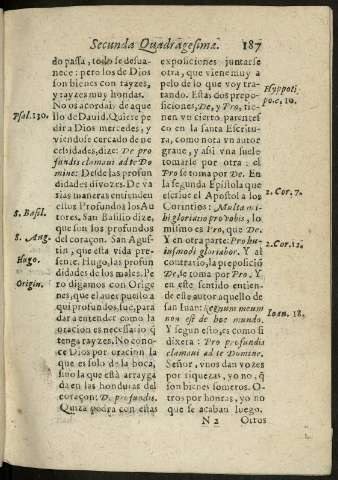 Secunda Quadragesima. 187
do passa, todo se desua-
nece: pero los de Dios
son bienes con rayzes,
y rayzes muy hondas.
No os acordais de aque
llo de Dauid. Quiere pe
dir a Dios mercedes, y
viendose cercado de ne
cessidades, dize: De pro
fundis clamaui ad te Do
mine: Desde las profun
didades di vozes. De va
rias maneras entienden
estos Profundos los Au
tores. San Basilio dize,
que son los profundos
del coraçon. San Agus-
tin, que esta vida pre-
sente. Hugo, las profun
didades de los males. Pe
ro digamos con Orige
nes, que el auer puesto a
qui profundos, fue, para
dar a entender como la
oracion es necessario q̃
tenga rayzes. No cono-
ce Dios por oracion la
que es solo de la boca,
sino la que està arrayga
da en las honduras del
coraçon: De profundis.
Quiza podrà con estas
Psal. 130.
S. Basil.
S. Aug.
Hugo.
Origin.
exposiciones juntarse
otra, que viene muy a
pelo de lo que voy tra-
tando. Estas dos prepo-
siciones, De, y Pro, tie-
nen vn cierto parentes-
co en la santa Escritu-
ra, como nota vn autor
graue, y assi vna suele
tomarse por otra: el
Pro se toma por De. En
la segunda Epistola que
escriue el Apostol a los
Corintios: Multa mi-
hi gloriatio pro vobis, lo
mismo es Pro, que De.
Y en otra parte: Pro hu-
iusmodi gloriabor. Y al
contrario, la preposiciõ
De, se toma por Pro. Y
en este sentido entien-
de este autor aquello de
san Iuan: Regnum meum
non est de hoc mundo.
Y segun esto, es como si
dixera: Pro profundis
clamaui ad te Domine.
Señor, vnos dan vozes
por riquezas, yo no, q̃
son bienes someros. O-
tros por honras, yo no
que se acaban luego.
Hyppoti.
po. c. 10.
2. Cor. 7.
2. Cor. 12.
Ioan. 18.
N 2 Otros